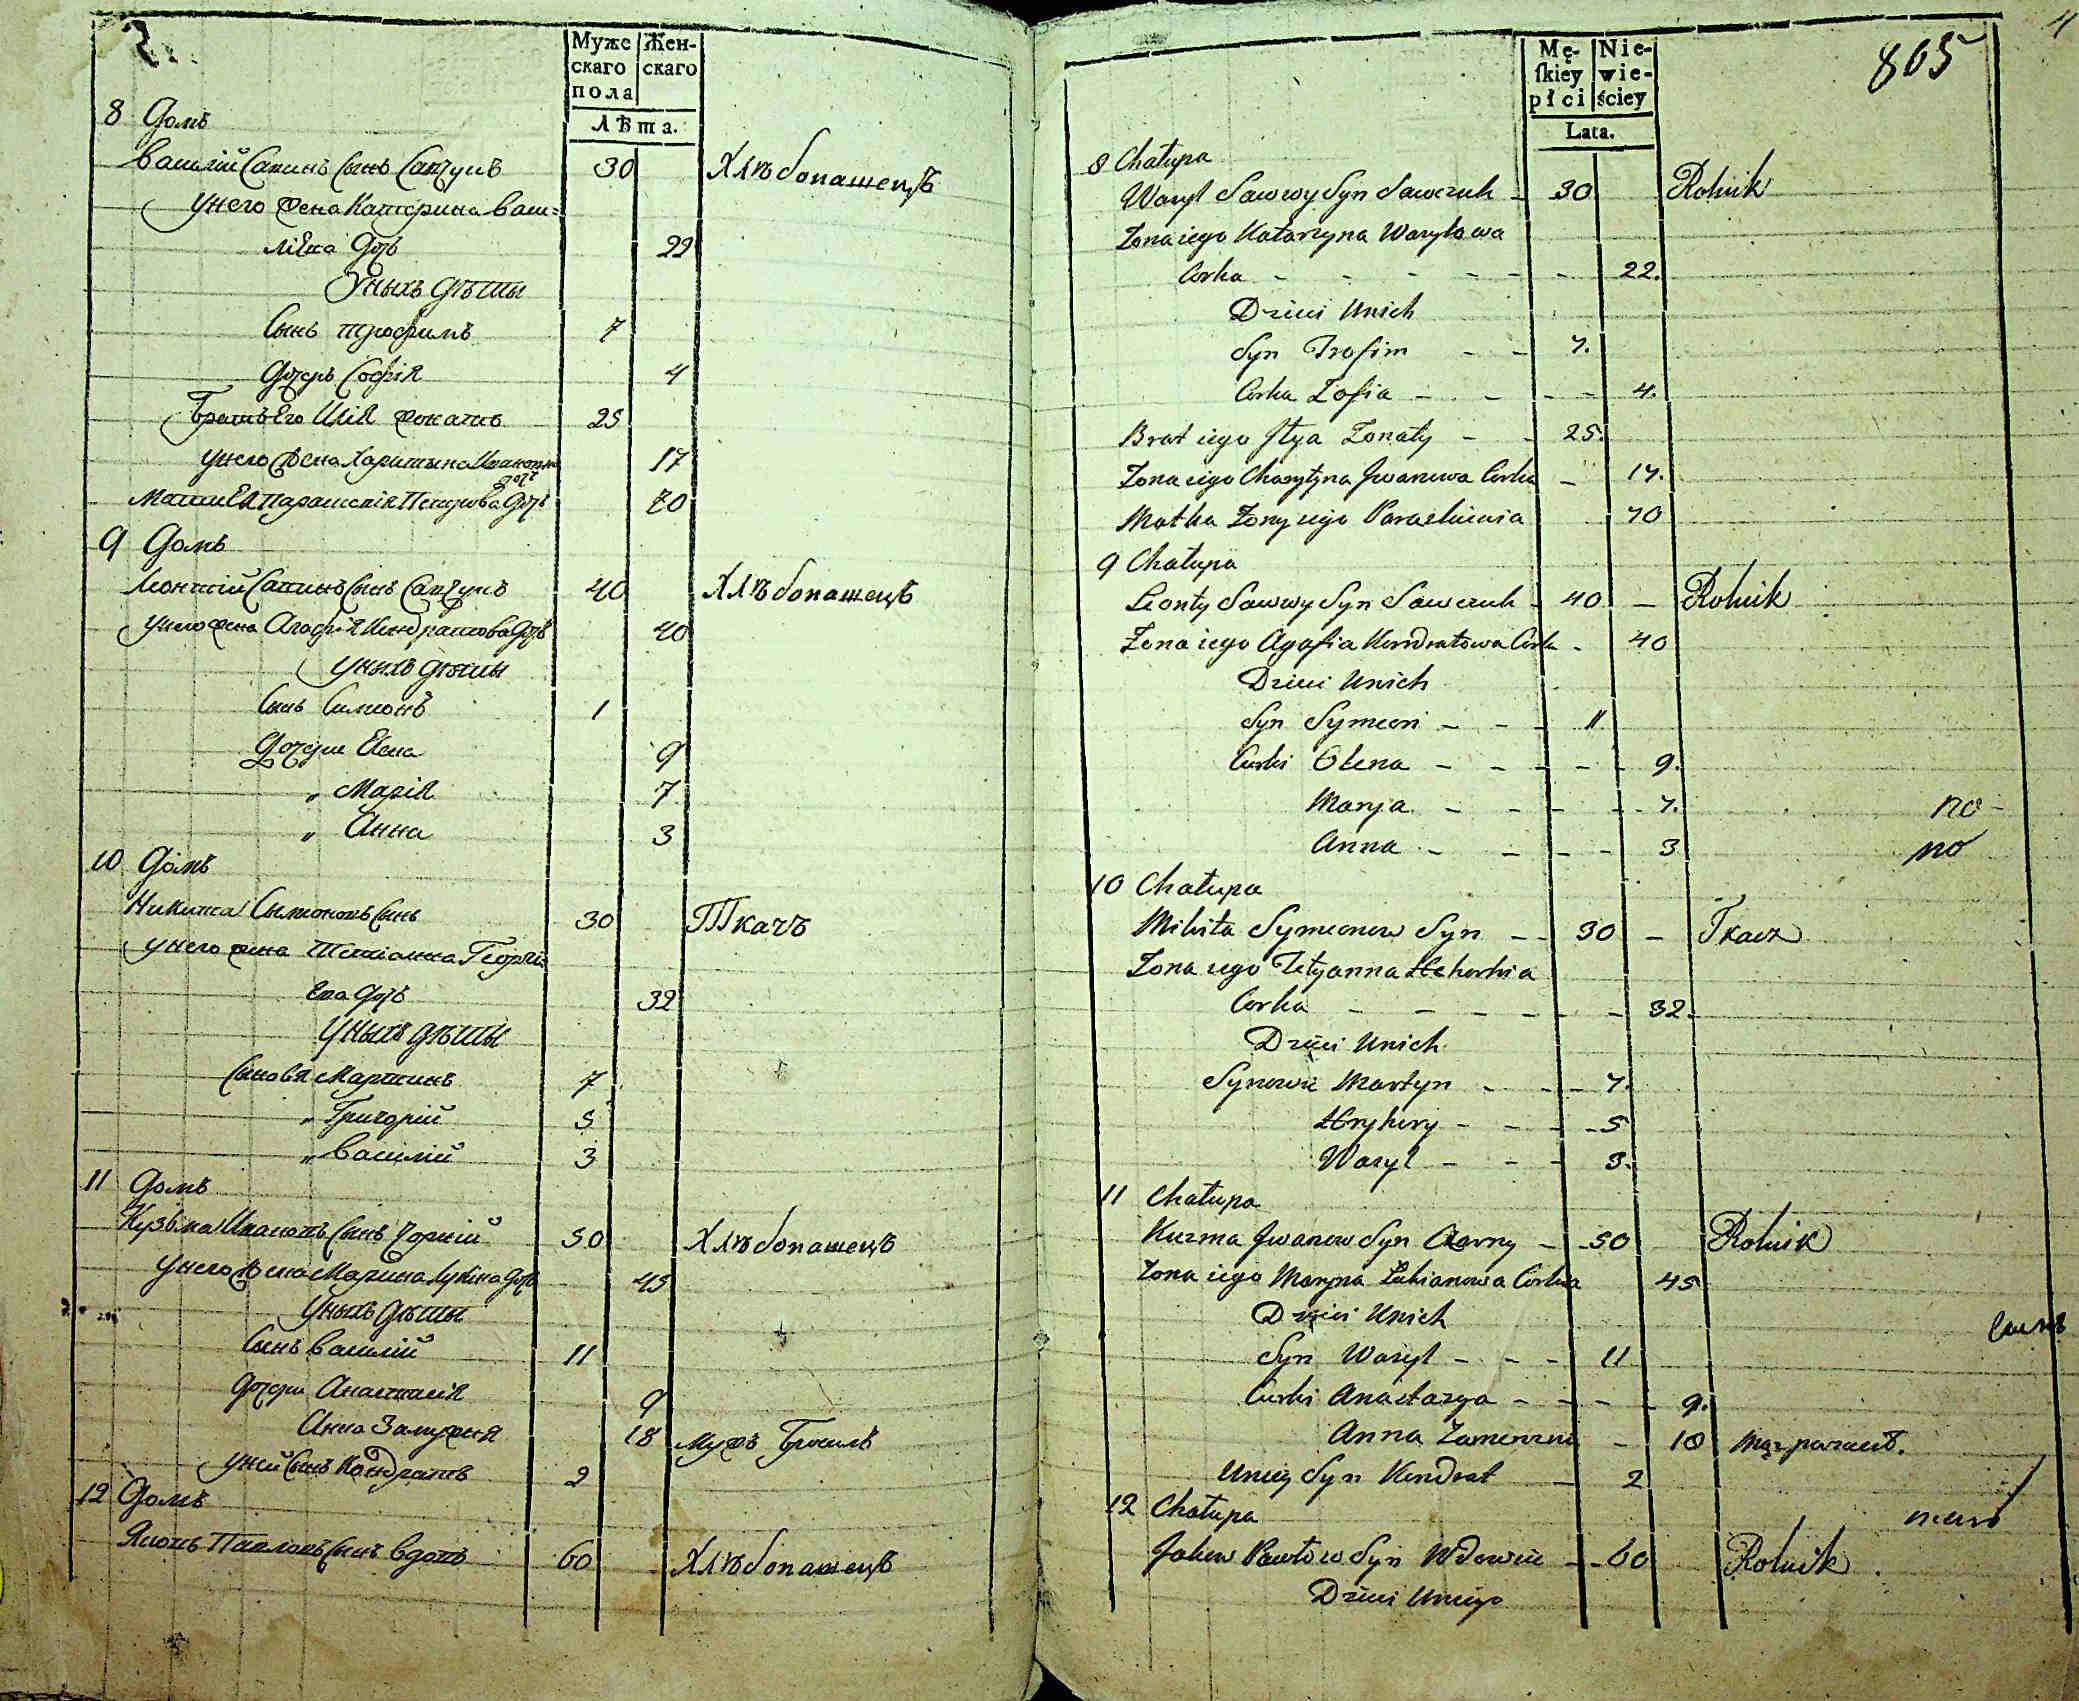 Муже
скаго
пола
Жен-
скаго
Лѣта.
8 Домъ
Василій Савинъ Сынъ Савчукъ 30 Хлѣбопашецъ
Унего Жена Катерина Васи=
ліева Дочь 22
Уныхъ Дѣти
Сынъ Трофимъ 7
Дочерь Софія 4
Братъ Его Илія Жонатъ 25
Унего Жена Харитына Иванова
дочь 17
Мати Ея Параскія Петрова Дочь 70
9 Домъ
Леонтій Савинъ Сынъ Савчукъ 40 Хлѣбопашецъ
Унего Жена Агафія Кондратова Дочь 40
Уныхъ Дѣти
Сынъ Симеонъ 1
Дочери Елена 9
„ Марія 7
„ Анна 3
10 Домъ
Никита Сымоновъ Сынъ 30 Ткачъ
Унего Жена Тетіанна Георгі=
Ева Дочь 32
Уныхъ Дѣти
Сыновя Мартинъ 7
„ Григорій 5
„ Василій 3
11 Домъ
Кузьма Ивановъ Сынъ Чорній 50 Хлѣбопашецъ
Унего Жена Марина Лукіна Дочь 45
Уныхъ Дѣти
Сынъ Василій 11
Дочери Анастасія 9
Анна Замужня 18 Мужъ Бросилъ
Уней Сынъ Кондратъ 2
12 Домъ
Яковъ Павловъ Сынъ Вдовъ 60 Хлѣбопашецъ
4
865
Mę-
ſkiey
płci
Nie-
wie-
ściey
Lata.
8 Chałupa
Wasyl Sawwy Syn Sawczuk - 30 Rolnik
Zona iego Katarzyna Wasylowa
Corka - - - - - - 22.
Dzieci Unich
Syn Trofim - - 7.
Corka Zofia - - - - 4.
Brat iego Jlya Zonaty - - 25.
Zona iego Charytyna Jwanowa Corka - 17.
Matka Zony iego Paraskiewia 70
9 Chałupa
Leonty Sawwy Syn Sawczuk - 40 - Rolnik
Zona iego Agafia Kondratowa Corka - 40
Dzieci Unich
Syn Symeon - - - 11
Curki Olena - - - - - 9.
Marya - - - - - 7.
no
Anna - - - - 3
no
10 Chałupa
Mikita Symeonow Syn - - 30 - Tkacz
Zona iego Tetyanna Hehorhia
Corka - - - - - - 32.
Dzieci Unich
Synowie Martyn - - - 7.
Hryhory - - - - 5
Wasyl - - - 3.
11 Chałupa
Kuzma Jwanow Syn Czarny - - 50 Rolnik
Zona iego Maryna Lukianowa Corka 45
Dzieci Unich
Syn Wasyl - - - 11
Curki Anastazya - - - - 9.
Anna - 18
Uniey Syn Kondrat - 2
12 Chałupa
Jakow Pawłow Syn Wdowiec - - 60 Rolnik.
Dzieci Uniego